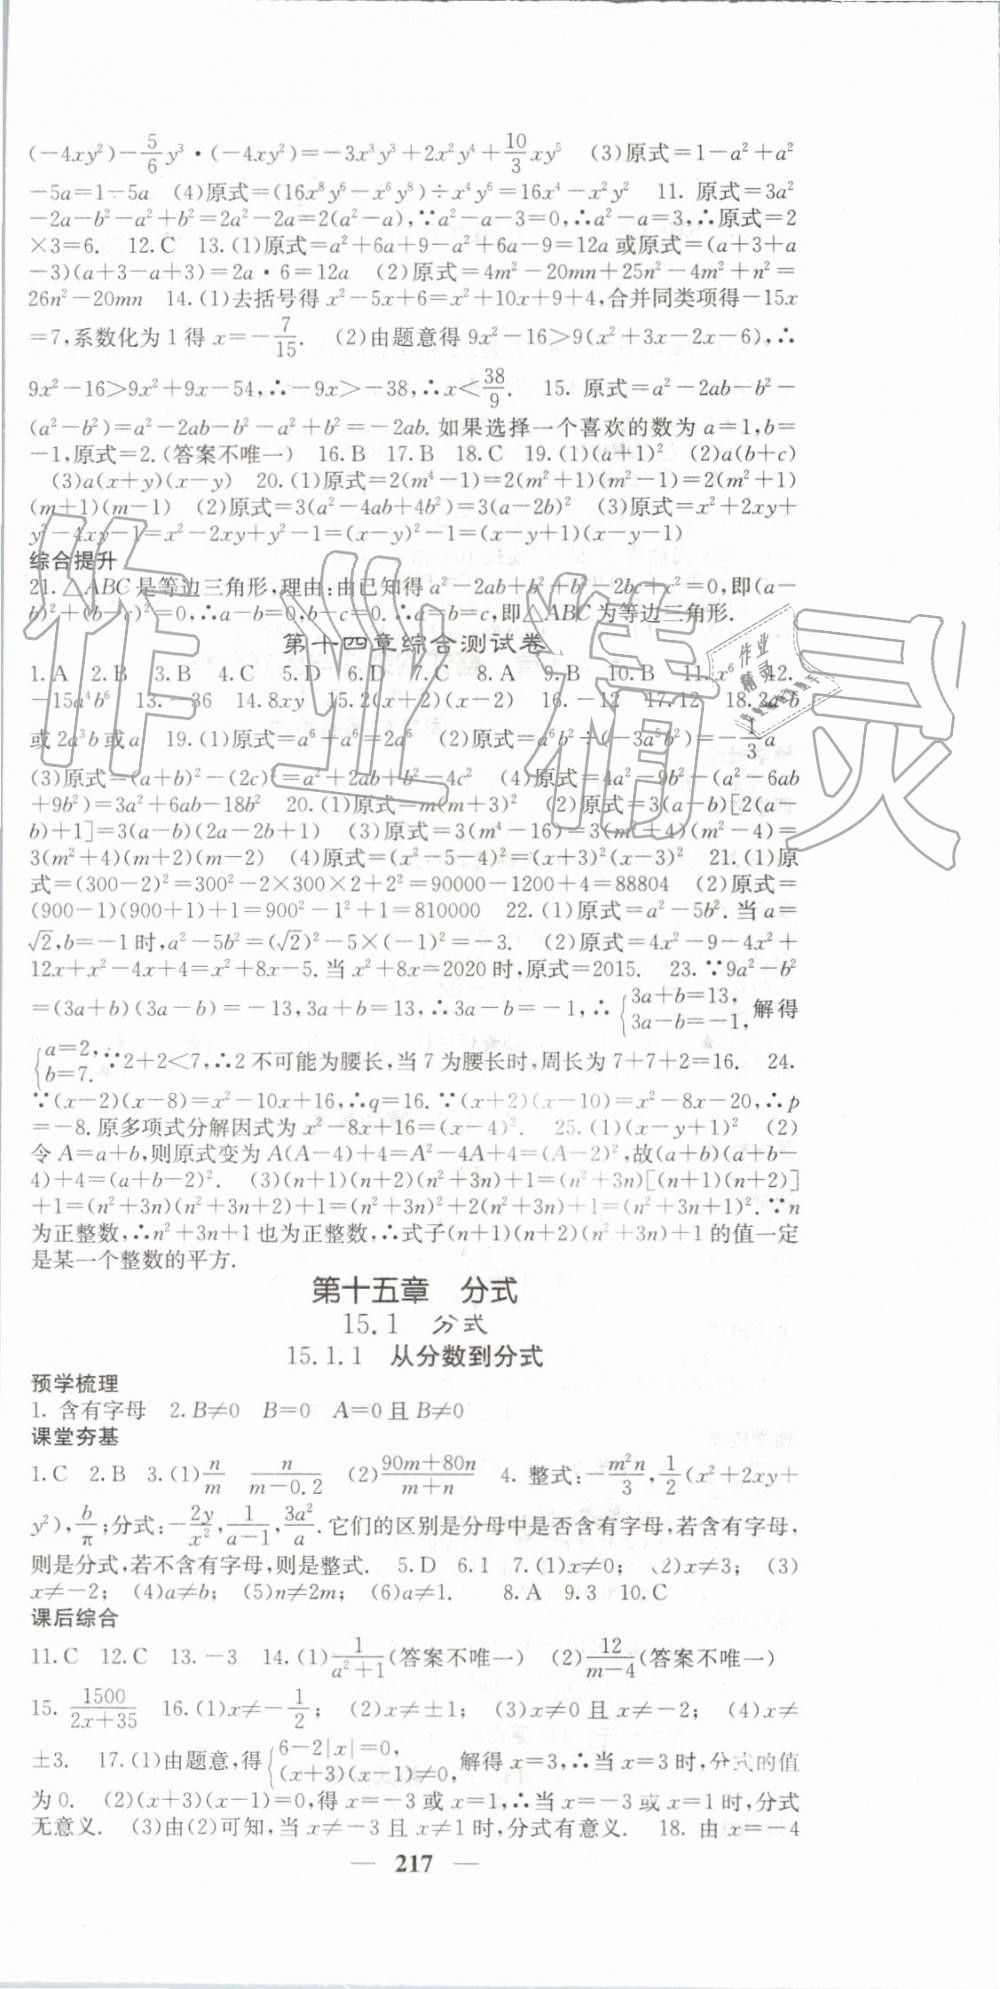 (-4xy²)-5/6y³·(-4xy²)=-3x³y³+2x²y⁴+10/3xy⁵ (3)原式=1-a²+a²
-5a=1-5a (4)原式=(16x⁸y⁶-x⁶y⁸)÷x⁴y⁶=16x⁴-x²y² 11. 原式=3a²
-2a-b²-a²+b²=2a²-2a=2(a²-a),∵a²-a-3=0,∴a²-a=3,∴原式=2
×3=6. 12.C 13.(1)原式=a²+6a+9-a²+6a-9=12a或原式=(a+3+a
-3)(a+3-a+3)=2a·6=12a (2)原式=4m²-20mn+25n²-4m²+n²=
26n²-20mn 14.(1)去括号得 x²-5x+6=x²+10x+9+4,合并同类项得-15x
=7,系数化为1得 x=-7/15. (2)由题意得 9x²-16>9(x²+3x-2x-6),∴
9x²-16>9x²+9x-54,∴-9x>-38,∴x<38/9. 15. 原式=a²-2ab-b²-
(a²-b²)=a²-2ab-b²-a²+b²=-2ab.如果选择一个喜欢的数为a=1,b=
-1,原式=2.(答案不唯一) 16.B 17.B 18.C 19.(1)(a+1)² (2)a(b+c)
(3)a(x+y)(x-y) 20.(1)原式=2(m⁴-1)=2(m²+1)(m²-1)=2(m²+1)
(m+1)(m-1) (2)原式=3(a²-4ab+4b²)=3(a-2b)² (3)原式=x²+2xy+
y²-4xy-1=x²-2xy+y²-1=(x-y)²-1=(x-y+1)(x-y-1)
综合提升
21.△ABC是等边三角形,理由:由已知得a²-2ab+b²+b²-2bc+c²=0,即(a-
b)²+(b-c)²=0,∴a-b=0,b-c=0.∴a=b=c,即△ABC为等边三角形.
第十四章综合测试卷
1.A 2.B 3.B 4.C 5.D 6.D 7.C 8.A 9.B 10.B 11.x⁶ 12.
-15a⁴b⁶ 13.-36 14.8xy 15.2(x+2)(x-2) 16.-12 17.12 18.2a²b
或2a³b或a 19.(1)原式=a⁶+a⁶=2a⁶ (2)原式=a⁶b²÷(-3a⁵b²)=-1/3a
(3)原式=(a+b)²-(2c)²=a²+2ab+b²-4c² (4)原式=4a²-9b²-(a²-6ab
+9b²)=3a²+6ab-18b² 20.(1)原式=m(m+3)² (2)原式=3(a-b)[2(a-
b)+1]=3(a-b)(2a-2b+1) (3)原式=3(m⁴-16)=3(m²+4)(m²-4)=
3(m²+4)(m+2)(m-2) (4)原式=(x²-5-4)²=(x+3)²(x-3)² 21.(1)原
式=(300-2)²=300²-2×300×2+2²=90000-1200+4=88804 (2)原式=
(900-1)(900+1)+1=900²-1²+1=810000 22.(1)原式=a²-5b².当a=
√2,b=-1时,a²-5b²=(√2)²-5×(-1)²=-3. (2)原式=4x²-9-4x²+
12x+x²-4x+4=x²+8x-5.当x²+8x=2020时,原式=2015. 23.∵9a²-b²
=(3a+b)(3a-b)=-13,3a+b=13,∴3a-b=-1,∴{3a+b=13, 3a-b=-1,解得
{a=2, b=7.∵2+2<7,∴2不可能为腰长,当7为腰长时,周长为7+7+2=16. 24.
∵(x-2)(x-8)=x²-10x+16,∴q=16.∵(x+2)(x-10)=x²-8x-20,∴p
=-8.原多项式分解因式为x²-8x+16=(x-4)². 25.(1)(x-y+1)² (2)
令A=a+b,则原式变为A(A-4)+4=A²-4A+4=(A-2)²,故(a+b)(a+b-
4)+4=(a+b-2)². (3)(n+1)(n+2)(n²+3n)+1=(n²+3n)[(n+1)(n+2)]
+1=(n²+3n)(n²+3n+2)+1=(n²+3n)²+2(n²+3n)+1=(n²+3n+1)².∵n
为正整数,∴n²+3n+1也为正整数,∴式子(n+1)(n+2)(n²+3n)+1的值一定
是某一个整数的平方.
第十五章 分式
15.1 分式
15.1.1 从分数到分式
预学梳理
1. 含有字母 2.B≠0 B=0 A=0且B≠0
课堂夯基
1.C 2.B 3.(1)n/m n/(m-0.2) (2)(90m+80n)/(m+n) 4. 整式:-m²n/3,1/2(x²+2xy+
y²),b/π;分式:-2y/x²,1/(a-1),3a²/a.它们的区别是分母中是否含有字母,若含有字母,
则是分式,若不含有字母,则是整式. 5.D 6.1 7.(1)x≠0; (2)x≠3; (3)
x≠-2; (4)a≠b; (5)n≠2m; (6)a≠1. 8.A 9.3 10.C
课后综合
11.C 12.C 13.-3 14.(1)1/(a²+1)(答案不唯一) (2)12/(m-4)(答案不唯一)
15. 1500/(2x+35) 16.(1)x≠-1/2; (2)x≠±1; (3)x≠0且x≠-2; (4)x≠
±3. 17.(1)由题意,得{6-2|x|=0, (x+3)(x-1)≠0,解得x=3,∴当x=3时,分式的值
为0. (2)(x+3)(x-1)=0,得x=-3或x=1,∴当x=-3或x=1时,分式
无意义. (3)由(2)可知,当x≠-3且x≠1时,分式有意义. 18. 由x=-4
— 217 —
作业精灵
作业
精灵